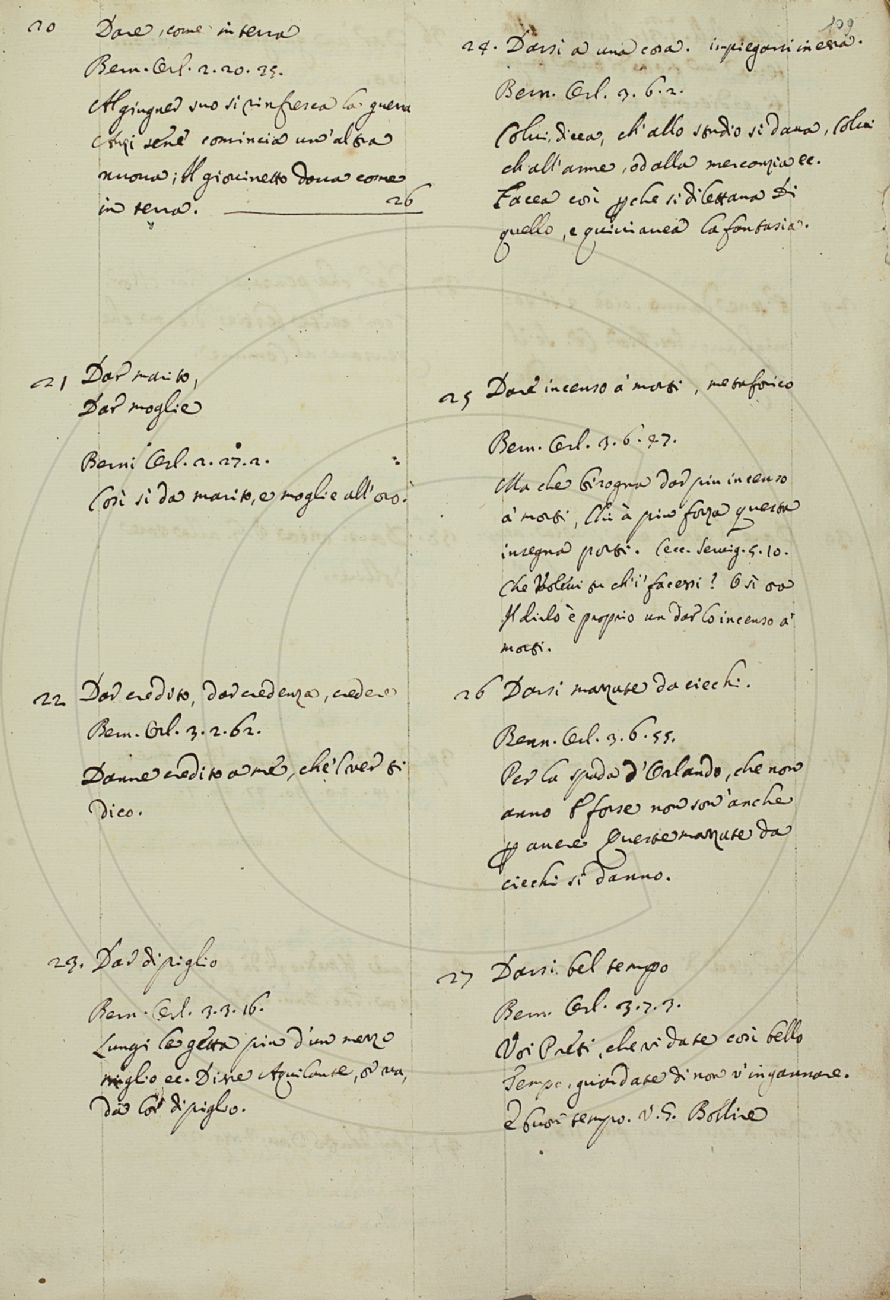 199
20 Dare, come in terra
Bern. Orl. 2. 20. 35.
Al giugner suo si rinfresca la guerra
Anzi se ne comincia un' altra
nuova; Il giovinetto dava come
in terra. 26
21 Dar marito,
Dar moglie
Berni Orl. 2. 27. 2.
Così si da marito, e moglie all' oro.
22 Dar credito, dar credenza, credere
Bern. Orl. 3. 2. 62.
Danne credito a me, che 'l ver ti
dico.
23. Dar di piglio
Bern. Orl. 3. 3. 16.
Lungi la getta piu d'un mezzo
miglio ec. Disse Aquilante, or va,
dà lor di piglio.
24. Darsi a una cosa. impiegarsi in essa.
Bern. Orl. 3. 6. 2.
Colui, dicea, ch' allo studio si dava, Colui
ch' all' arme, od alla mercanzia ec.
Facea così perche si dilettava di
quello, e quivi avea la fantasia.
25 Dare incenso a' morti, metaforico
Bern. Orl. 3. 6. 47.
Ma che bisogna dar piu incenso
a' morti, Chi à piu forza questa
insegna porti. Cecc. Servig. 5. 10.
Che volevi tu ch' i' facessi? O sì ora
Il dirlo è proprio un dar lo incenso a'
morti.
26 Darsi mazzate da ciechi.
Bern. Orl. 3. 6. 55.
Per la spada d'Orlando, che non
anno E forse non son' anche
per avere Queste mazzate da
ciechi si danno.
27 Darsi bel tempo
Bern. Orl. 3. 7. 3.
Voi Preti, che vi date così bello
Tempo, guardate di non v' ingannare.
E buon tempo. V. S.